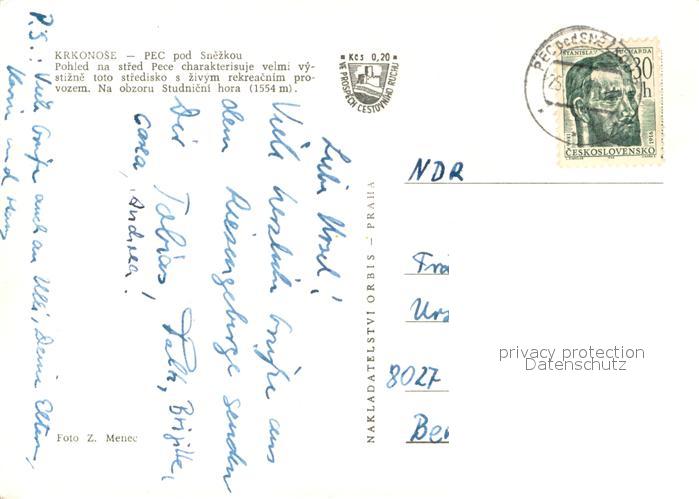 KRKONOŠE — PEC pod Sněžkou
Pohled na střed Pece charakterisuje velmi vý-
stižně toto středisko s živým rekreačním pro-
vozem. Na obzoru Studniční hora (1554 m).
Kčs 0,20
VE PROSPĚCH CESTOVNÍHO RUCHU
PEC pod SNĚŽKOU
30 h
ČESKOSLOVENSKO
Liebe Ursel!
Viele herzliche Grüße aus
dem Riesengebirge senden
Dir Tobias, Falk, Brigitte,
Andrea!
P.S.: Viele Grüße auch an Ulli, Deine Eltern,
und
NAKLADATELSTVÍ ORBIS — PRAHA
NDR
Fra
Urs
8027
Foto Z. Menec
privacy protection
Datenschutz